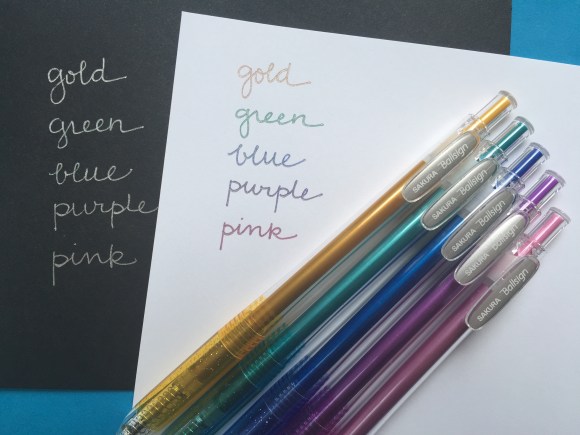 gold
green
blue
purple
pink
gold
green
blue
purple
pink
SAKURA Ballsign
SAKURA Ballsign
SAKURA Ballsign
SAKURA Ballsign
SAKURA Ballsign